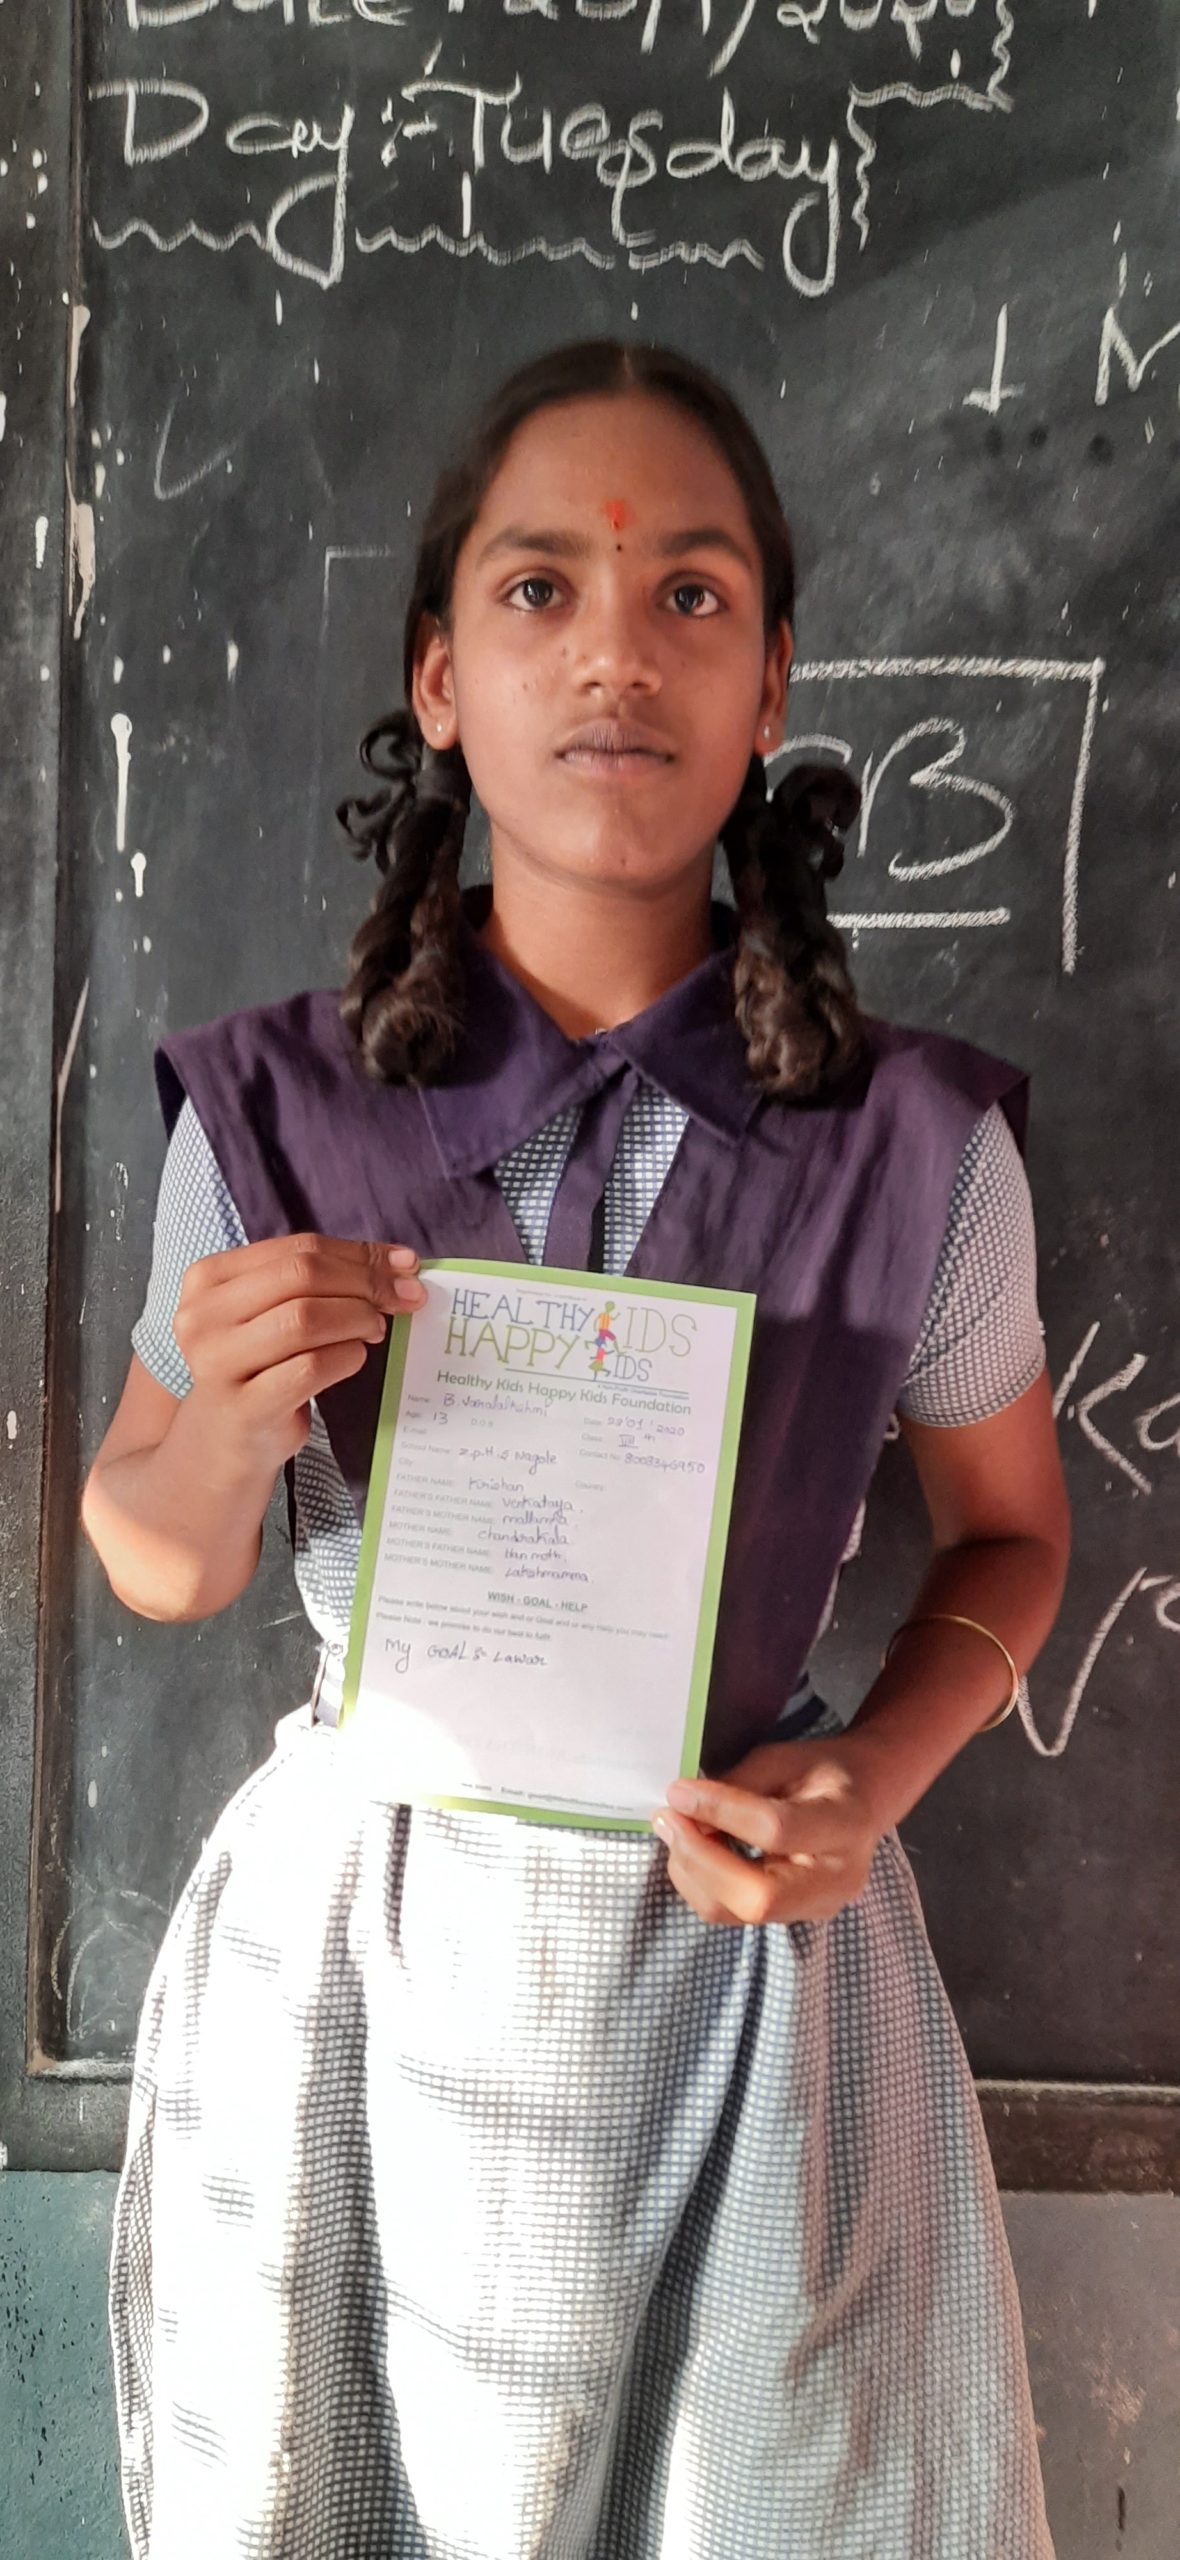 Day :- Tuesday
1 M
B
HEALTHY KIDS
HAPPY KIDS
Healthy Kids Happy Kids Foundation
Name: B. Varalalkshmi
Date: 28/01/2020
Age: 13 D.O.B
Class: VIII th
Email:
School Name: Z.p.H.S Nagole
Contact No: 8008346950
City:
Country:
FATHER NAME: Krishan
FATHER'S FATHER NAME: Venkataya.
FATHER'S MOTHER NAME: mallamma
MOTHER NAME: chandrakala
MOTHER'S FATHER NAME: Hanmoth.
MOTHER'S MOTHER NAME: Lakshmamma.
WISH - GOAL - HELP
Please write below about your wish and or Goal and or any help you may need
Please Note : we promise to do our best to fulfil
My GOAL :- Lawar